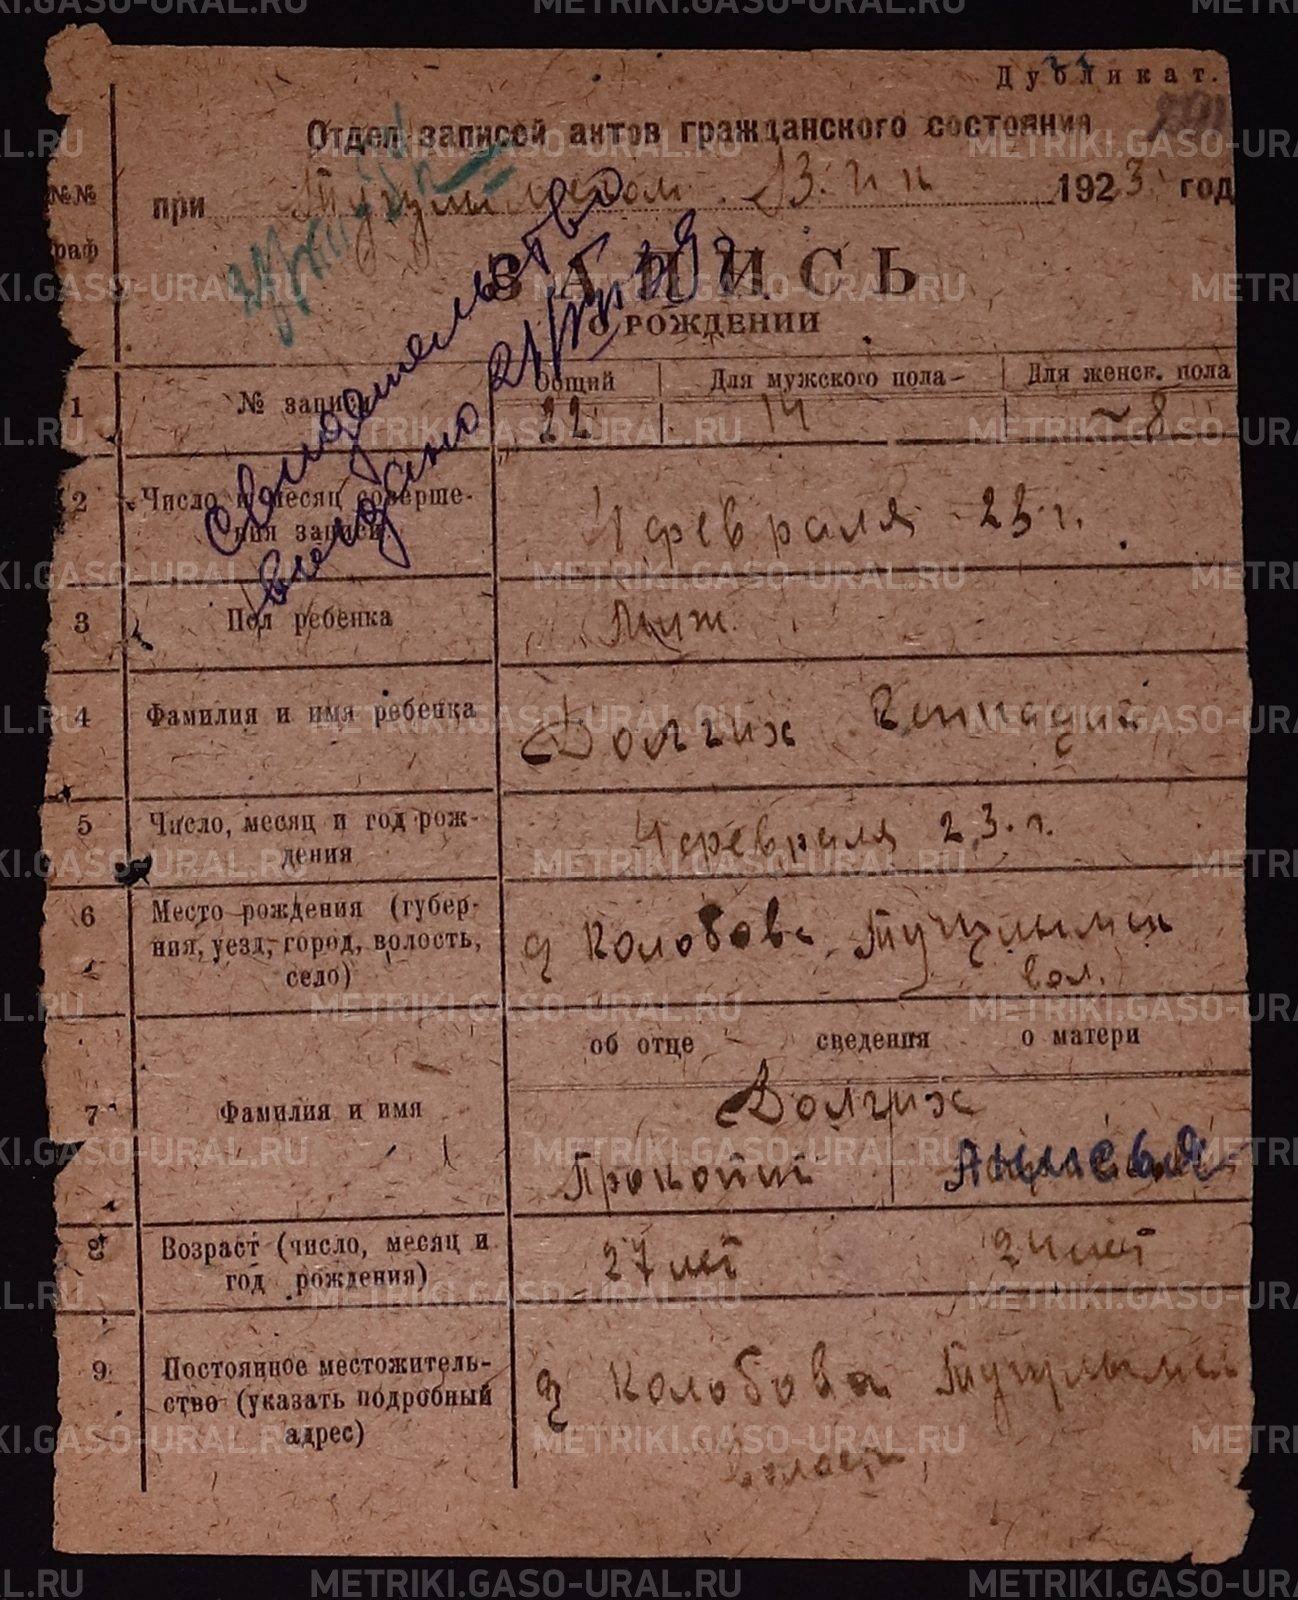 Дубликат.
Отдел записей актов гражданского состояния
№№ граф
при Тугулымском В.И.К 1923 год
ЗАПИСЬ
О РОЖДЕНИИ
Свидетельство
выдано 21/
1 № записи Общий Для мужского пола Для женск. пола
22 14 8
2 Число и месяц соверше-
ния записи 4 февраля 23 г.
3 Пол ребенка Муж.
4 Фамилия и имя ребенка Долгих Геннадий
5 Число, месяц и год рож-
дения 4 февраля 23. г.
6 Место рождения (губер-
ния, уезд, город, волость,
село) д Колобова Тугулымск
вол.
об отце сведения о матери
7 Фамилия и имя Долгих
Прокопий
8 Возраст (число, месяц и
год рождения) 27 лет 24 лет
9 Постоянное местожитель-
ство (указать подробный
адрес) д Колобова Тугулымск
власти
METRIKI.GASO-URAL.RU